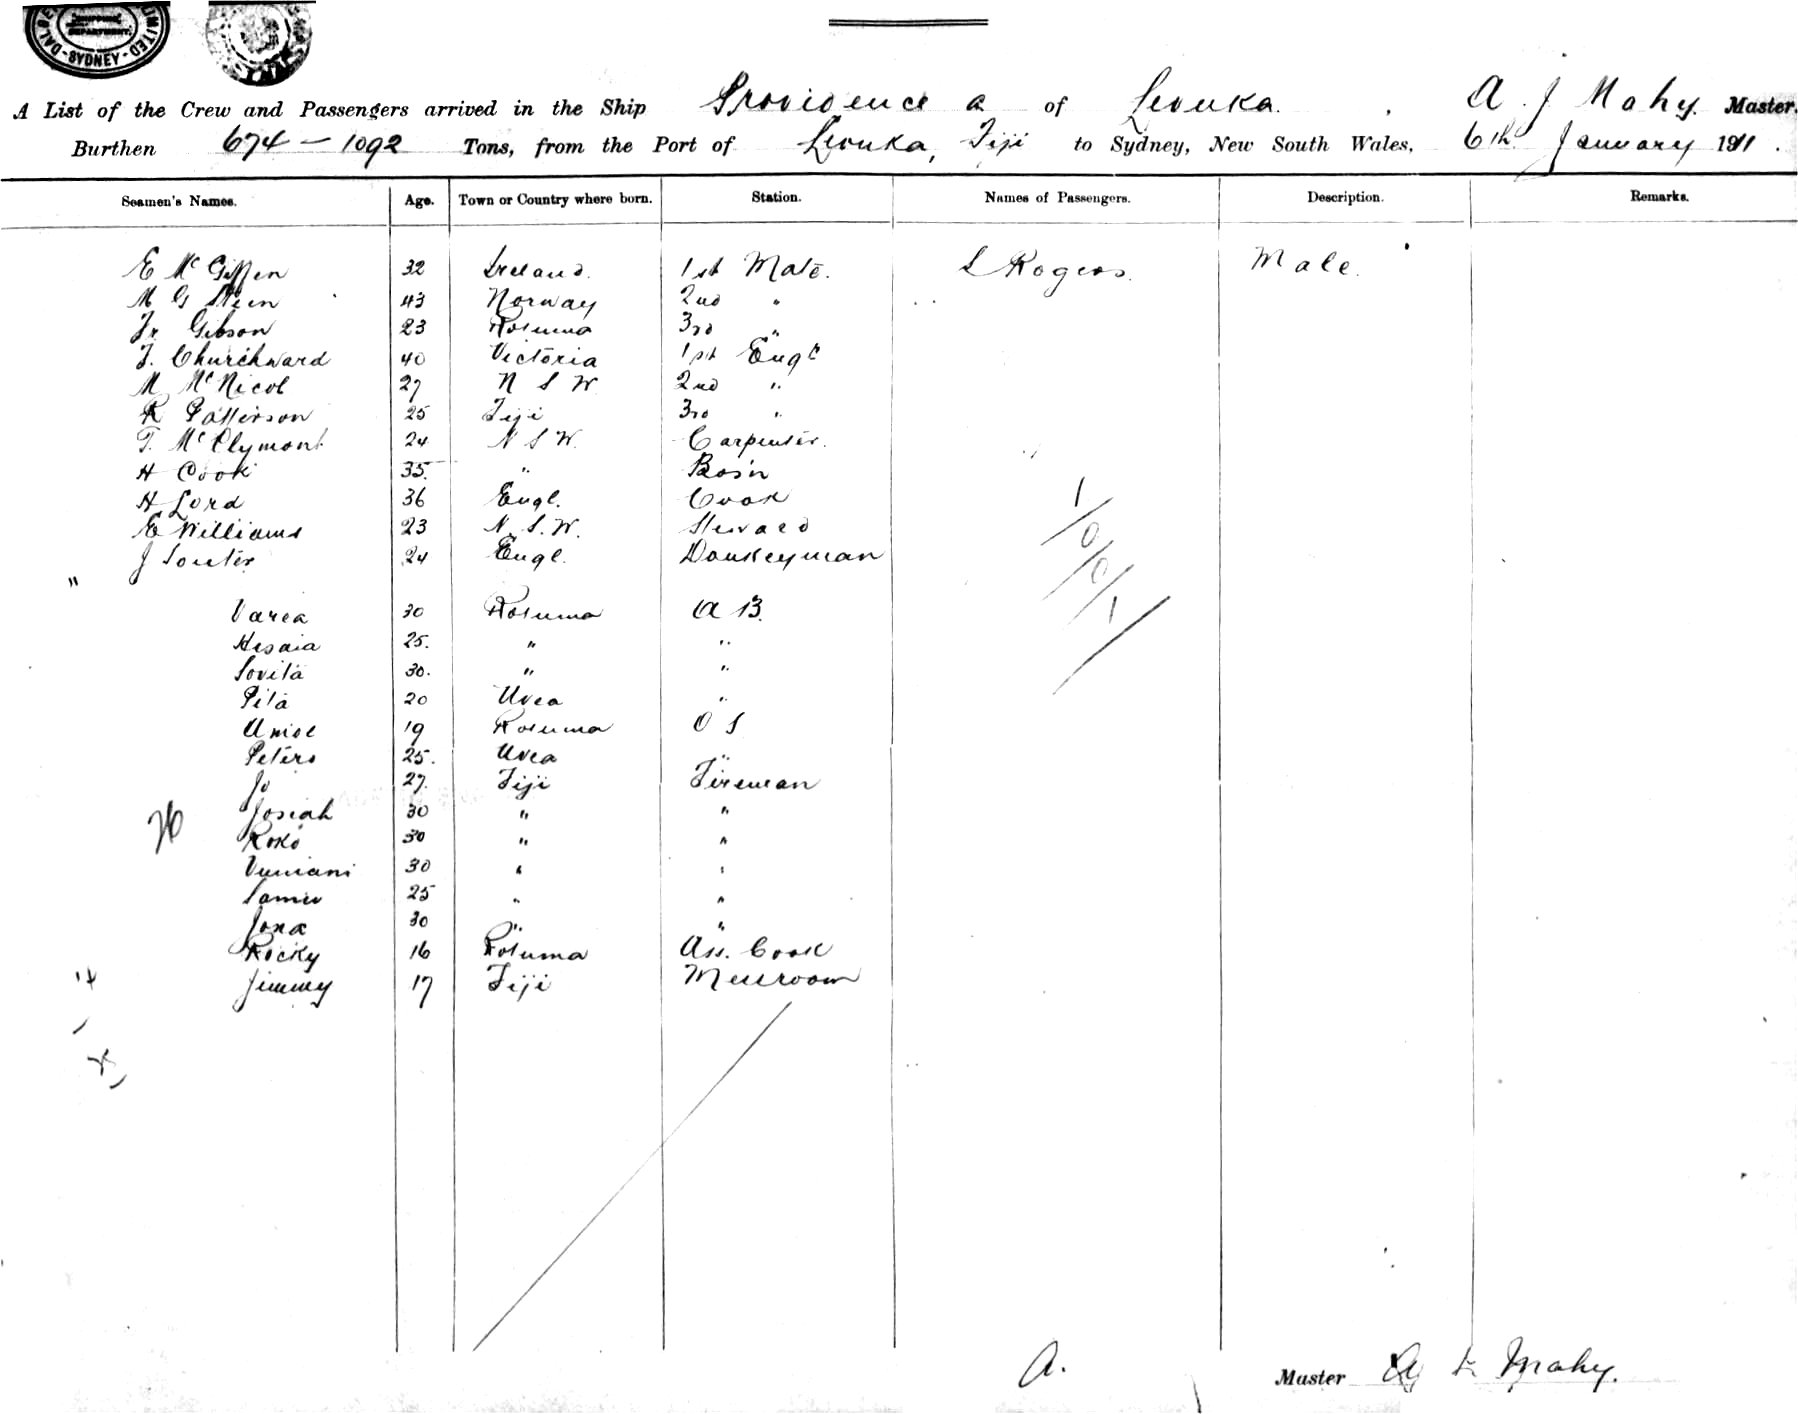 LIMITED
SHIPPING
DEPARTMENT.
SYDNEY
A List of the Crew and Passengers arrived in the Ship Providence a of Levuka. A. J Mahy. Master.
Burthen 674 - 1092 Tons, from the Port of Levuka, Fiji to Sydney, New South Wales, 6th January 1911.
Seamen's Names. Age. Town or Country where born. Station. Names of Passengers. Description. Remarks.
E McGiffen 32 Ireland. 1st Mate. L Rogers. Male.
M G Stein 43 Norway 2nd "
Gibson 23 Rotuma 3rd "
F. Churchward 40 Victoria 1st Engr
M McNicol 27 N S W 2nd "
R Patterson 25 Fiji 3rd "
T. McClymont 24 N S W. Carpenter.
H Cook 35. " Bos'n
H Lord 36 Engl. Cook
E Williams 23 N. S. W. Steward
J Souter 24 Engl. Donkeyman
"
Varea 30 Rotuma A B.
Hesaia 25. " "
Sovita 30. " "
Pita 20 Uvea "
19 Rotuma O S
Peters 25. Uvea "
Jo 27. Fiji Fireman
Josiah 30 " "
Roko 30 " "
Vuniani 30 " "
Samu 25 " "
Jona 30 " "
Rocky 16 Rotuma Ass. Cook
Jimmy 17 Fiji Messroom
1/0/0/1/
A.
Master Mahy.